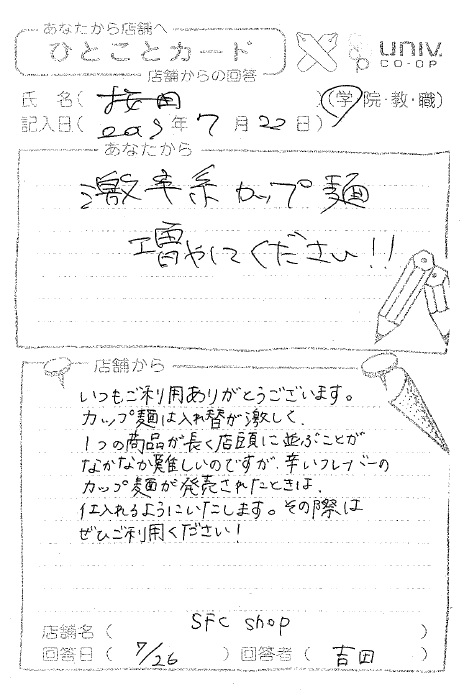 あなたから店舗へ
ひとことカード
店舗からの回答
UNIV.
CO-OP
氏 名( 桜田 )(学院・教・職)
記入日( 2009年 7月 22日)
あなたから
激辛系カップ麺
増やしてください!!
店舗から
いつもご利用ありがとうございます。
カップ麺は入れ替が激しく、
1つの商品が長く店頭に並ぶことが
なかなか難しいのですが、辛いフレバーの
カップ麺が発売されたときは、
仕入れるようにいたします。その際は
ぜひご利用ください!
店舗名( SFC shop )
回答日( 7/26 ) 回答者( 吉田 )